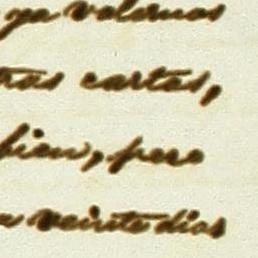 ya volvernos
tras cartas,
bien, pero
veinte dias